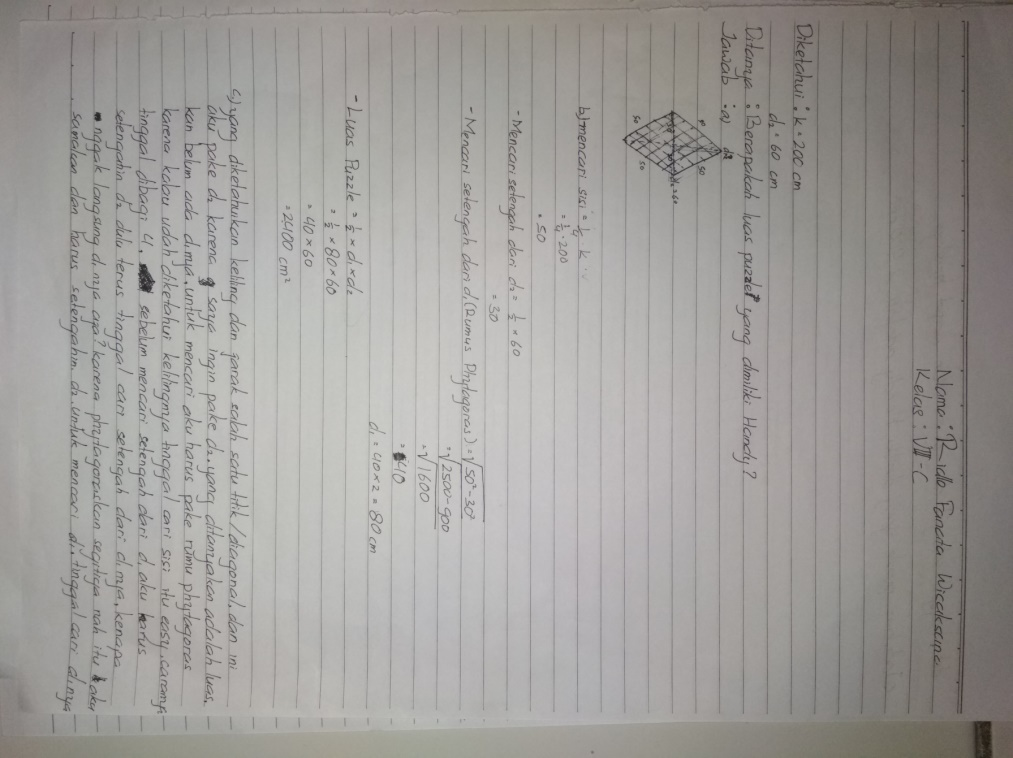 Nama : Ridlo Fananta Wicaksana
Kelas : VIII-C
Diketahui : k = 200 cm
d₂ = 60 cm
Ditanya : Berapakah luas puzzle yang dimiliki Handy?
Jawab : a)
P
d₂
50
d₂ = 60
50
50
b) mencari sisi = ¼ · k
= ¼ · 200
= 50
- Mencari setengah dari d₂ = ½ × 60
= 30
- Mencari setengah dari d₁ (Rumus Phytagoras) = √50²-30²
= √2500-900
= √1600
= 40
d₁ = 40 × 2 = 80 cm
- Luas Puzzle = ½ × d₁ × d₂
= ½ × 80 × 60
= 40 × 60
= 2400 cm²
c) yang diketahuikan keliling dan garak salah satu titik/diagonal. dan ini
aku pake d₂ karena saya ingin pake d₂. yang ditanyakan adalah luas.
kan belum ada d₁nya. untuk mencari aku harus pake rumu phytagoras
karena kalau udah diketahui kelilingnya tinggal cari sisi itu easy. caranya
tinggal dibagi 4. sebelum mencari setengah dari d₁ aku harus
setengahin d₂ dulu terus tinggal cari setengah dari d₁nya. kenapa
nggak langsung d₁nya aja? karena phytagoraskan segitiga nah itu aku
samakan dan harus setengahin d₂. untuk mencari d₁. tinggal cari d₁nya